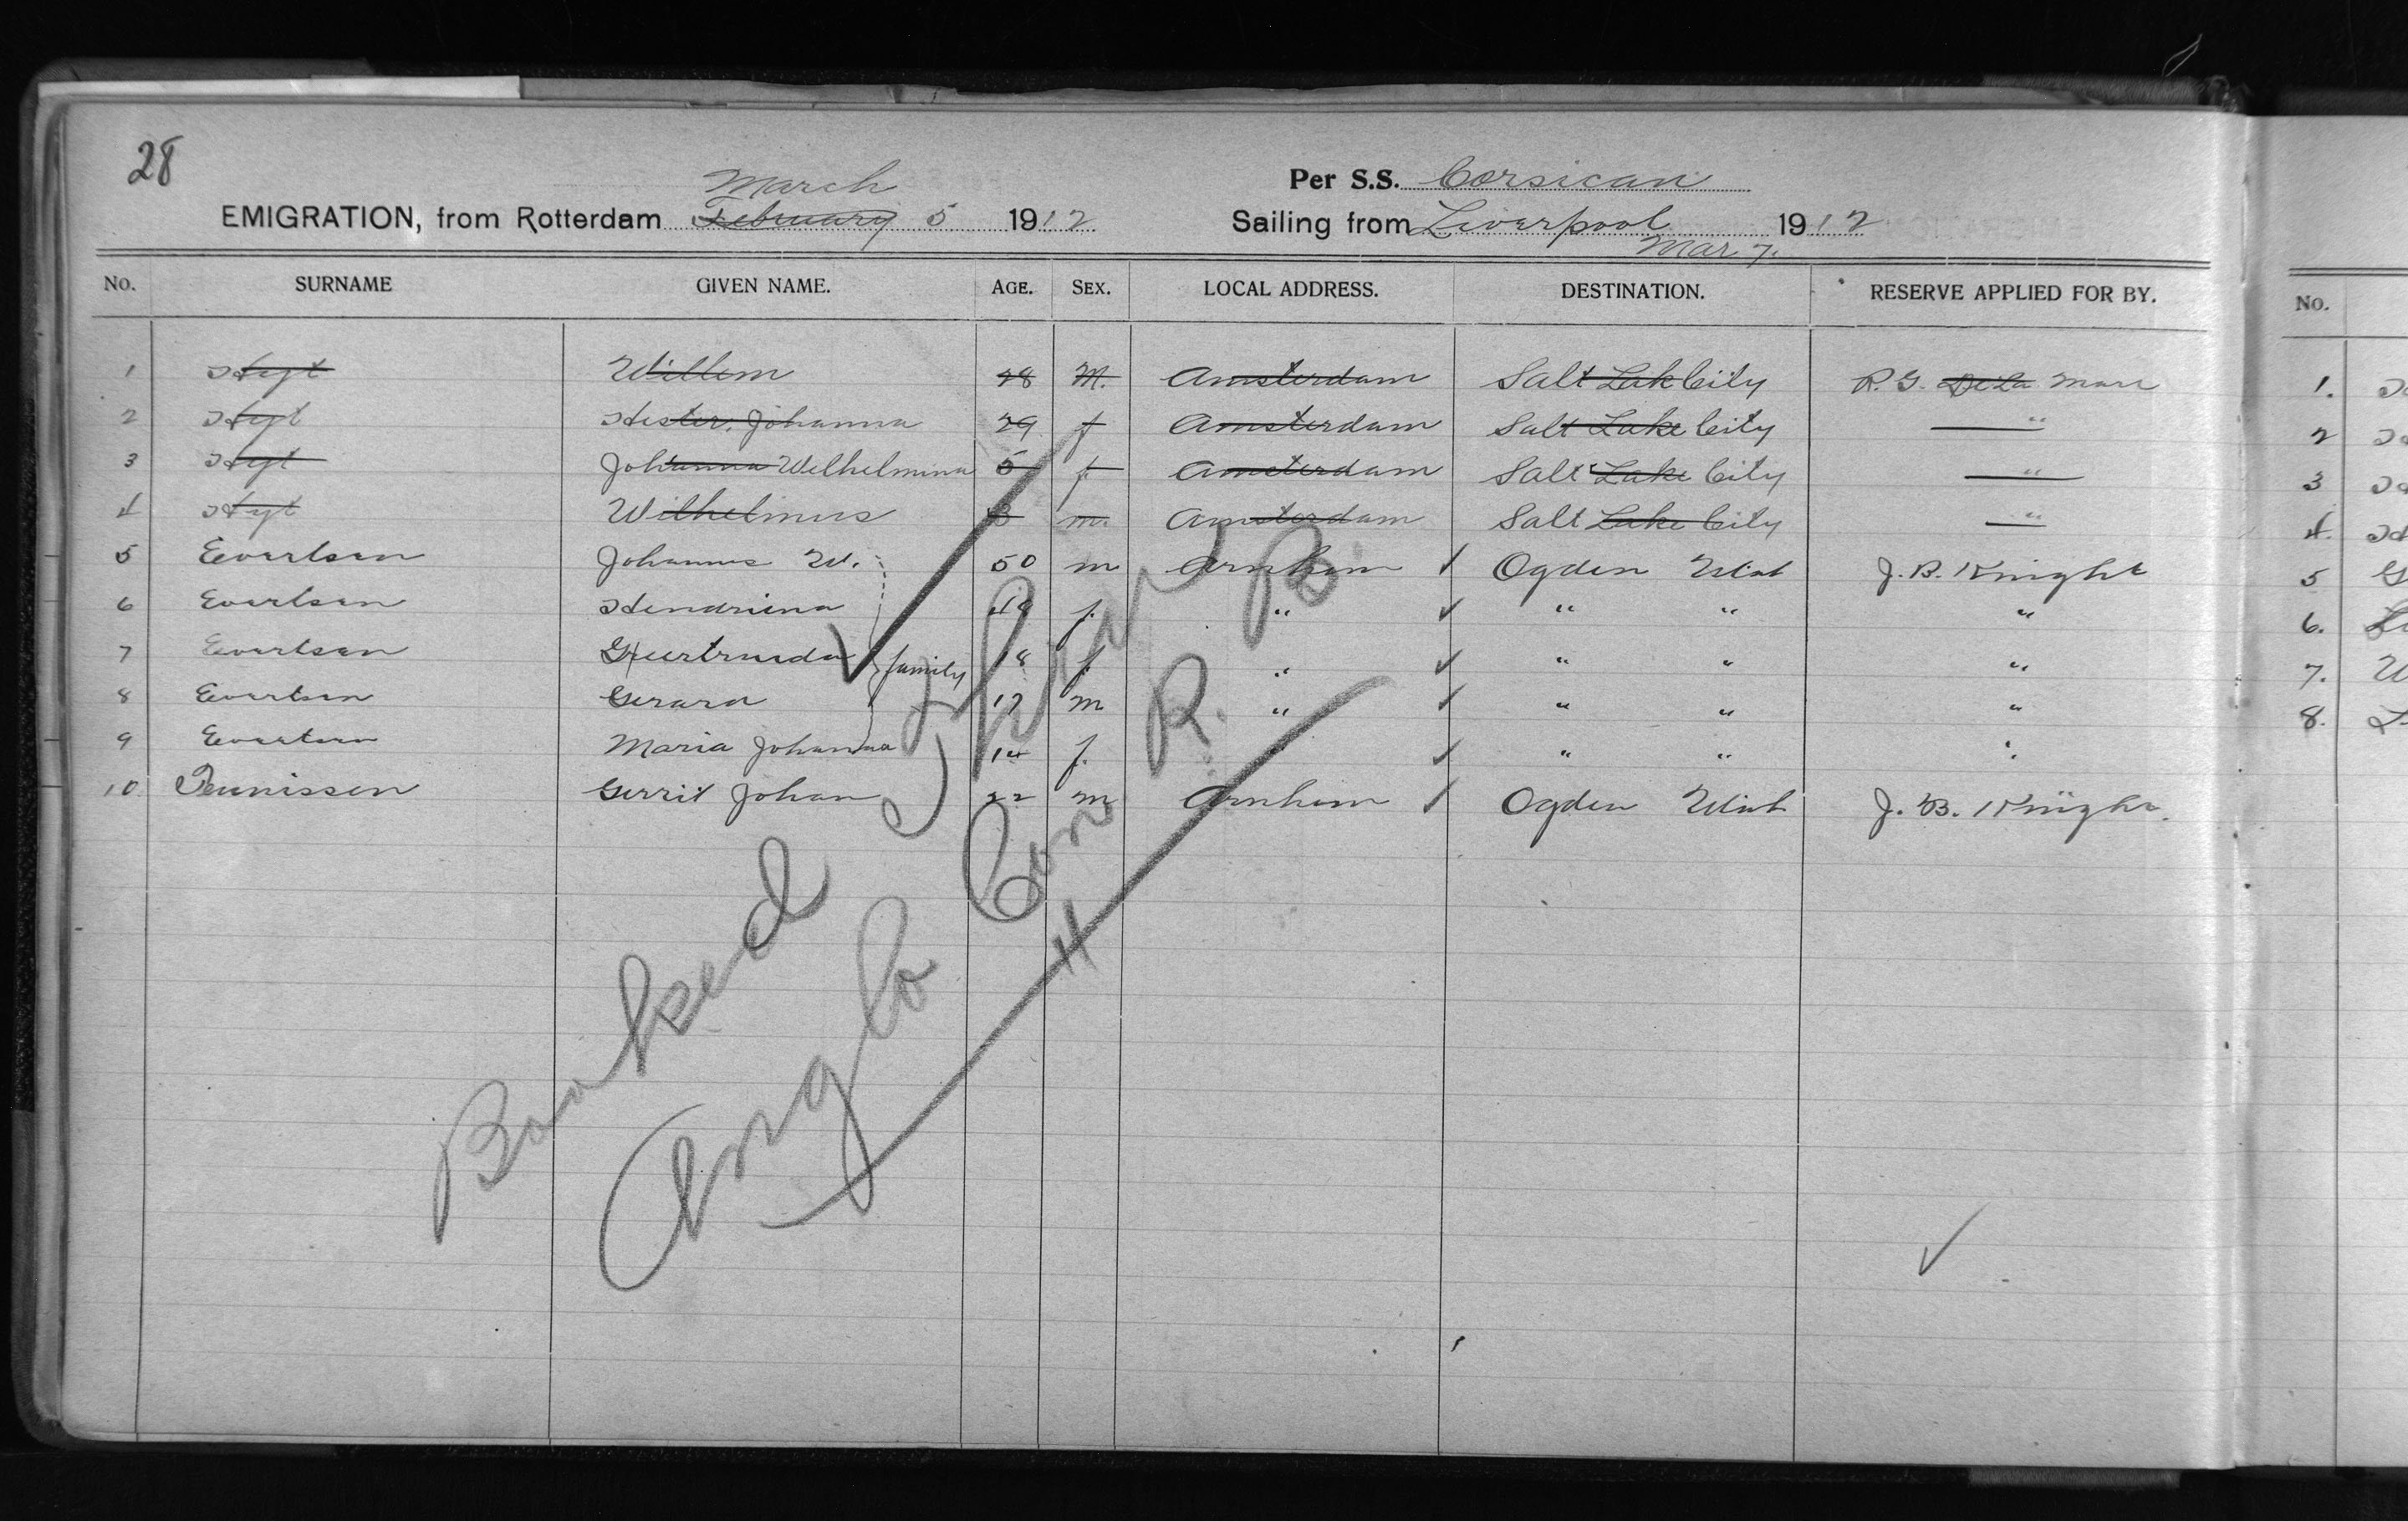 28
March
Per S.S. Corsican
EMIGRATION, from Rotterdam February 5 1912
Sailing from Liverpool 1912
Mar 7.
No. SURNAME GIVEN NAME. AGE. SEX. LOCAL ADDRESS. DESTINATION. RESERVE APPLIED FOR BY. No.
1 Willem 28 M. Amsterdam Salt Lake City R. G. De la Mare 1.
2 Hester Johanna 29 f Amsterdam Salt Lake City " 2
3 Johanna Wilhelmina 5 f. Amsterdam Salt Lake City " 3
4 Wilhelmus 3 m. Amsterdam Salt Lake City " 4.
5 Evertsen Johannes W. 50 m Arnhem Ogden Utah J. B. Knight 5
6 Evertsen Hendriena 49 f. " " " " 6.
7 Evertsen Geertruida family 18 f. " " " " 7.
8 Evertsen Gerard 17 m " " " " 8.
9 Evertsen Maria Johanna 14 f. " " " "
10 Teunissen Gerrit Johan 22 m Arnhem Ogden Utah J. B. Knight.
Booked
Anglo Con R.